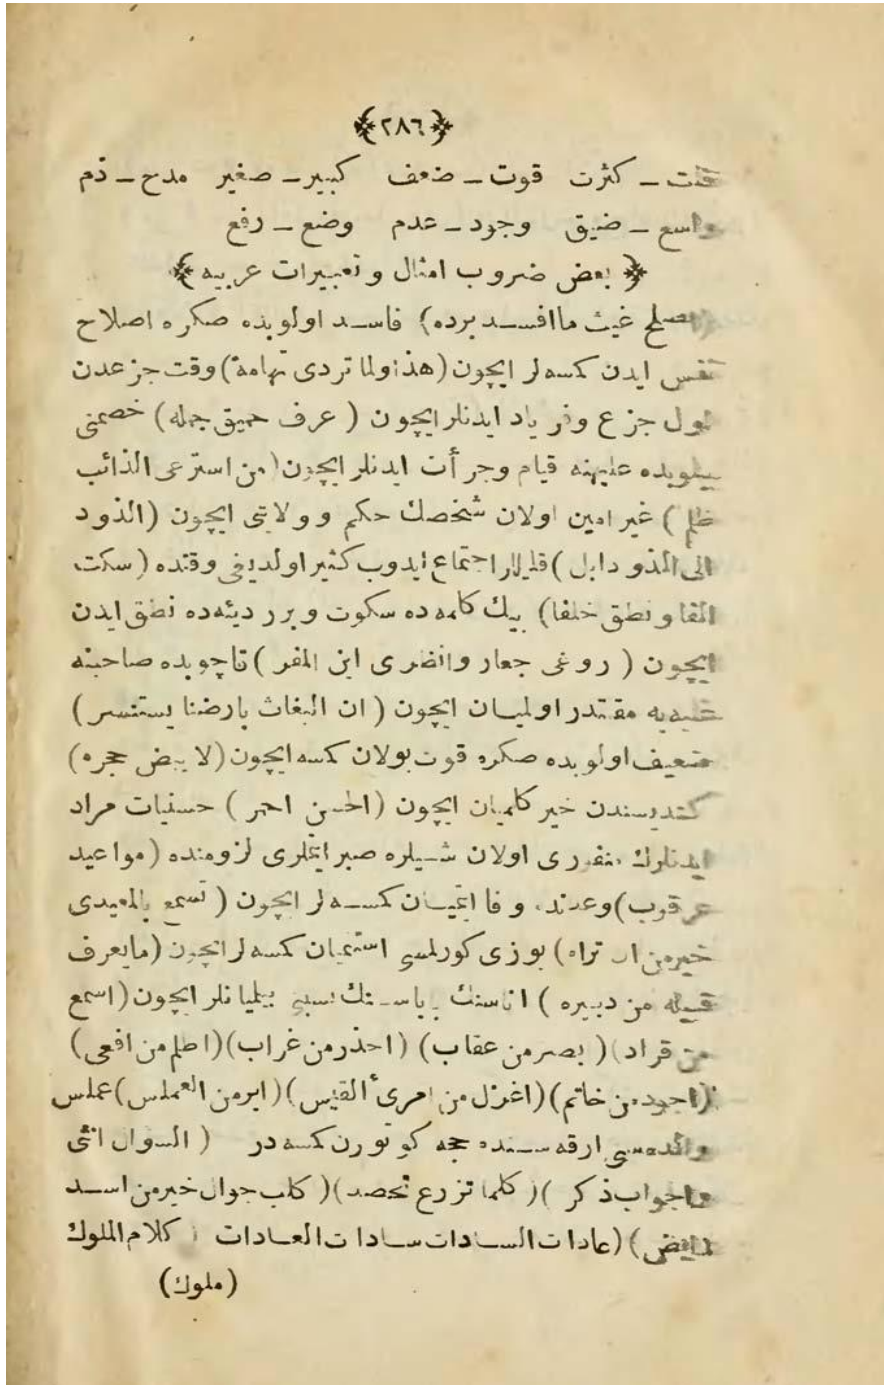 ﴿٢٨٦﴾
قلت ـ كثرت قوت ـ ضعف كبير ـ صغير مدح ـ ذم
واسع ـ ضيق وجود ـ عدم وضع ـ رفع
﴿ بعض ضروب امثال و تعبيرات عربيه ﴾
(اصلح غيث ماافسد برده) فاسد اولوبده صكره اصلاح
نفس ايدن كسه لر ايچون (هذا ولما تردى تهامة) وقت جزعدن
اول جزع وفرياد ايدنلر ايچون ( عرف حميق جمله) خصمنى
بيلوبده عليهنه قيام وجرأت ايدنلر ايچون (من استرعى الذائب
ظلم ) غير امين اولان شخصك حكم وولايتى ايچون (الذود
الى الذود ابل ) قليللر اجتماع ايدوب كثير اولديغى وقتده (سكت
الفا ونطق خلفا) بيك كلمه ده سكوت وبرر ديئه ده نطق ايدن
ايچون ( روغى جعار وانظرى اين المفر ) قاچوبده صاحبنه
غلبه يه مقتدر اولميان ايچون ( ان البغاث بارضنا يستنسر )
ضعيف اولوبده صكره قوت بولان كسه ايچون (لا يبض حجره)
كنديسندن خير كلميان ايچون (الحسن احمر ) حسنيات مراد
ايدنلرك منفورى اولان شيلره صبر ايتملرى لزومنده (مواعيد
عرقوب) وعدنده وفا ايتميان كسه لر ايچون ( تسمع بالمعيدى
خير من ان تراه) يوزى كورلمسى استنميان كسه لر ايچون (مايعرف
قبيله من دبيره ) اناسنك باباسنك نسبنى بيلميانلر ايچون (اسمع
من قراد) ( بصر من عقاب) (احذر من غراب) (اظلم من افعى)
(اجود من خاتم) (اغزل من امرئ القيس) (ابر من العملس) عملس
والده سى ارقه سنده حجه كوتورن كسه در ( السوال انثى
والجواب ذكر ) (كلما تزرع تحصد) ( كلب جوال خير من اسد
رابض) (عادات السادات سادات العادات ( كلام الملوك
(ملوك)